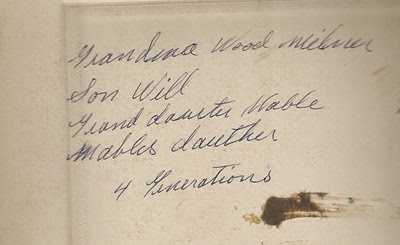 Grandma Wood Milner
Son Will
Grand dauter Mable
Mables dauther
4 Generations